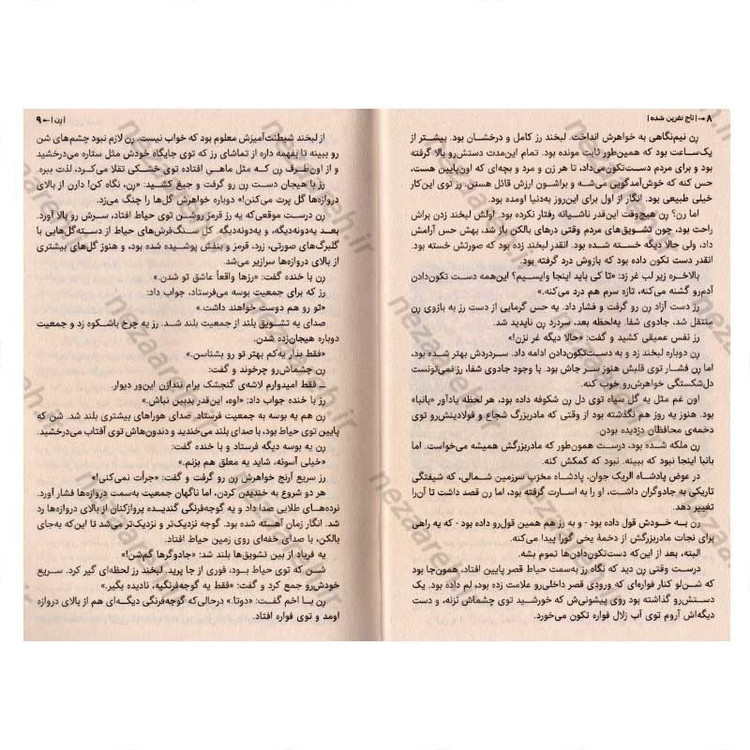 ۸ •–| تاج نفرین شده |
رِن نیم‌نگاهی به خواهرش انداخت. لبخند رز کامل و درخشان بود. بیشتر از
یک‌ساعت بود که همین‌طور ثابت مونده بود. تمام این‌مدت دستش‌رو بالا گرفته
بود و برای مردم دست‌تکون‌می‌داد، تا هر زن و مرد و بچه‌ای که اون‌پایین هست،
حس کنه که خوش‌آمدگویی می‌شه و براشون ارزش قائل هستن. رز توی این‌کار
خیلی طبیعی بود. انگار از اول برای این‌روز به‌دنیا اومده بود.
اما رن؟ رن هیچ‌وقت این‌قدر ناشیانه رفتار نکرده بود. اولش لبخند زدن براش
راحت بود، چون تشویق‌های مردم وقتی درهای بالکن باز شد، بهش حس آرامش
داد، ولی حالا دیگه خسته شده بود. انقدر لبخند زده بود که صورتش خسته بود.
انقدر دست تکون داده بود که بازوش درد گرفته بود.
بالاخره زیر لب غر زد: «تا کی باید اینجا وایسیم؟ این‌همه دست تکون‌دادن
آدم‌رو گشنه می‌کنه، تازه سرم هم درد می‌کنه.»
رز دست آزاد رِن رو گرفت و فشار داد. یه حس گرمایی از دست رز به بازوی رِن
منتقل شد، جادوی شفا. یه‌لحظه بعد، سردرد رِن ناپدید شد.
رز نفس عمیقی کشید و گفت: «حالا دیگه غر نزن!»
رِن دوباره لبخند زد و به دست‌تکون‌دادن ادامه داد. سردردش بهتر شده بود،
اما رِن فشار توی قلبش هنوز سر جاش بود. با وجود جادوی شفا، رز نمی‌تونست
دل‌شکستگی خواهرش‌رو خوب کنه.
اون غم مثل یه گل سیاه توی دل رِن شکوفه داده بود، هر لحظه یادآور «بانبا»
بود. هنوز یه روز هم نگذشته بود از وقتی که مادربزرگ شجاع و فولادینش‌رو توی
دخمه‌ی محافظان دزدیده بودن.
رِن ملکه شده بود، درست همون‌طور که مادربزرگش همیشه می‌خواست. اما
بانبا اینجا نبود که ببینه. نبود که کمکش کنه.
در عوض پادشاه الریک جوان، پادشاه مخرب سرزمین شمالی، که شیفتگی
تاریکی به جادوگران داشت، او را به اسارت گرفته بود، اما رِن قصد داشت تا آن‌را
تغییر دهد.
رِن به خودش قول داده بود - و به رز هم همین قول‌رو داده بود - که یه راهی
برای نجات مادربزرگش از دخمهٔ یخی گورا پیدا می‌کنه.
البته، بعد از این‌که دست‌تکون‌دادن‌ها تموم بشه.
درست وقتی رِن دید که نگاه رز به‌سمت حیاط قصر پایین افتاد، همون‌جا بود
که شن‌لو کنار فواره‌ای که ورودی قصر داخلی‌رو علامت زده بود، لم داده بود. یک
دستش‌رو گذاشته بود روی پیشونی‌ش که خورشید توی چشماش نزنه، و دست
دیگه‌اش آروم توی آب زلال فواره تکون می‌خورد.
| رِن | –• ۹
از لبخند شیطنت‌آمیزش معلوم بود که خواب نیست. رِن لازم نبود چشم‌های شن
رو ببینه تا بفهمه داره از تماشای رز که توی جایگاه خودش مثل ستاره می‌درخشید
و از اون‌طرف رِن که مثل ماهی افتاده توی خشکی تقلا می‌کرد، لذت ببره.
رز با هیجان دست رِن رو گرفت و جیغ کشید: «رِن، نگاه کن! دارن از بالای
دروازه‌ها گل پرت می‌کنن!» دوباره خواهرش گل‌ها را چنگ می‌زد.
رِن درست موقعی‌که یه رز قرمز روشن توی حیاط افتاد، سرش رو بالا آورد.
بعد یه‌دونه‌دیگه، و یه‌دونه‌دیگه. کل سنگ‌فرش‌های حیاط از دسته‌گل‌هایی با
گلبرگ‌های صورتی، زرد، قرمز و بنفش پوشیده شده بود، و هنوز گل‌های بیشتری
از بالای دروازه‌ها سرازیر می‌شد.
رِن با خنده گفت: «رزها واقعاً عاشق تو شدن.»
رز که برای جمعیت بوسه می‌فرستاد، جواب داد:
«تو رو هم دوست خواهند داشت.»
صدای یه تشویق بلند از جمعیت بلند شد. رز یه چرخ باشکوه زد و جمعیت
دوباره هیجان‌زده شدن.
«فقط بذار یه‌کم بهتر تو رو بشناسن.»
رِن چشماش‌رو چرخوند و گفت:
ــ فقط امیدوارم لاشه‌ی گنجشک برام نندازن این‌ور دیوار.
رز با خنده جواب داد: «اوه، این‌قدر بدبین نباش.»
رِن هم یه بوسه به جمعیت فرستاد. صدای هوراهای بیشتری بلند شد. شن که
پایین توی حیاط بود، با صدای بلند می‌خندید و دندون‌هاش توی آفتاب می‌درخشید.
رِن یه بوسه دیگه فرستاد و با خنده گفت:
«خیلی آسونه، شاید یه معلق هم بزنم.»
رز سریع آرنج خواهرش رِن رو گرفت و گفت: «جرأت نمی‌کنی!»
هر دو شروع به خندیدن کردن، اما ناگهان جمعیت به‌سمت دروازه‌ها هجوم آورد.
نرده‌های طلایی صدا داد و یه گوجه‌فرنگی گندیده پروازکنان از بالای دروازه‌ها رد
شد. انگار زمان آهسته شده بود. گوجه نزدیک‌تر و نزدیک‌تر می‌شد تا این‌که به‌جای
بالکن، با صدای خفه‌ای روی زمین حیاط افتاد.
یه فریاد از بین تشویق‌ها بلند شد: «جادوگرها گم‌شن!»
شن که توی حیاط بود، فوری از جا پرید. لبخند رز لحظه‌ای گیر کرد. سریع
خودش‌رو جمع کرد و گفت: «فقط یه گوجه‌فرنگیه، نادیده بگیر.»
رِن با اخم گفت: «دوتا.» درحالی‌که گوجه‌فرنگی دیگه‌ای هم از بالای دروازه
اومد و توی فواره افتاد.
nezaareh.ir